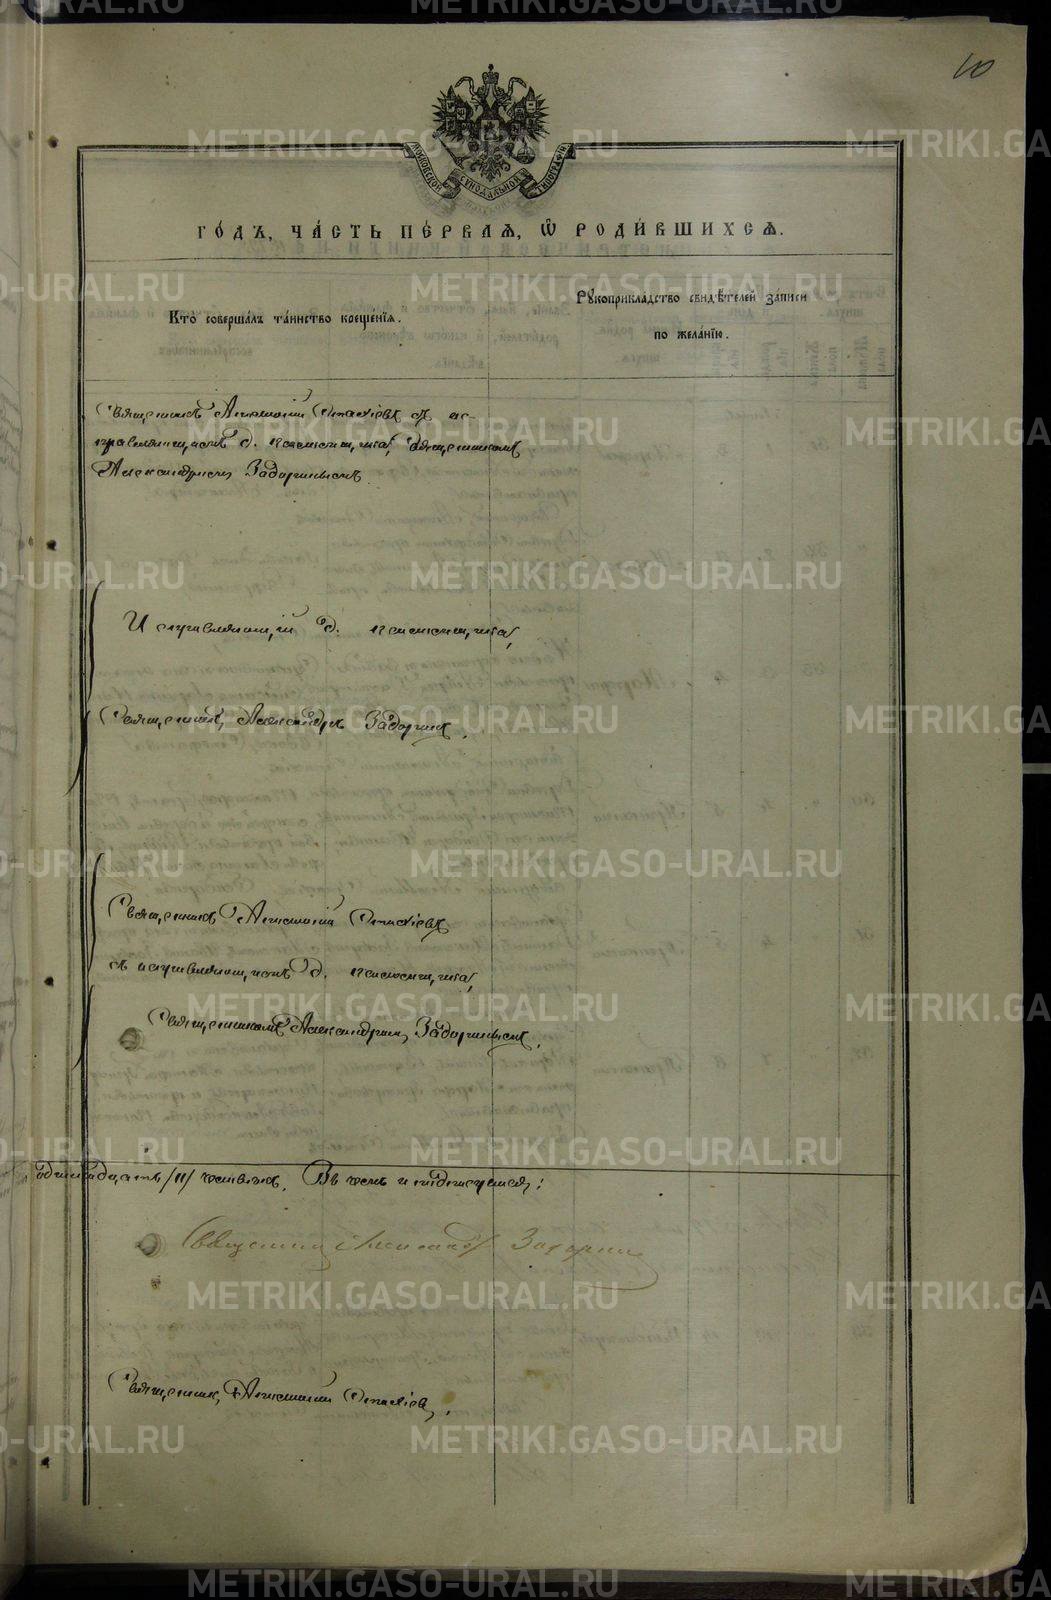 10
МОСКОВСКОЙ СѴНОДАЛЬНОЙ ТИПОГРАФІИ
ГО́ДЪ, ЧА́СТЬ ПЕ́РВАѦ, Ѡ҆ РОДИ́ВШИХСѦ.
Кто̀ соверша́лъ та́инство креще́нїѧ.
Рꙋкоприкла́дство свидѣ́телей за́писи
по жела́нїю.
Священникъ съ ис-
правляющимъ д. псаломщика, священникомъ
Александромъ Задоринымъ.
Исправляющій д. псаломщика,
Священникъ Александръ Задоринъ.
Священникъ
съ исправляющимъ д. псаломщика,
Священникомъ Александромъ Задоринымъ.
одиннадцать /11/ человѣкъ. Въ чемъ и подписуемся:
Священникъ Александръ Задоринъ
Священникъ
METRIKI.GASO-URAL.RU